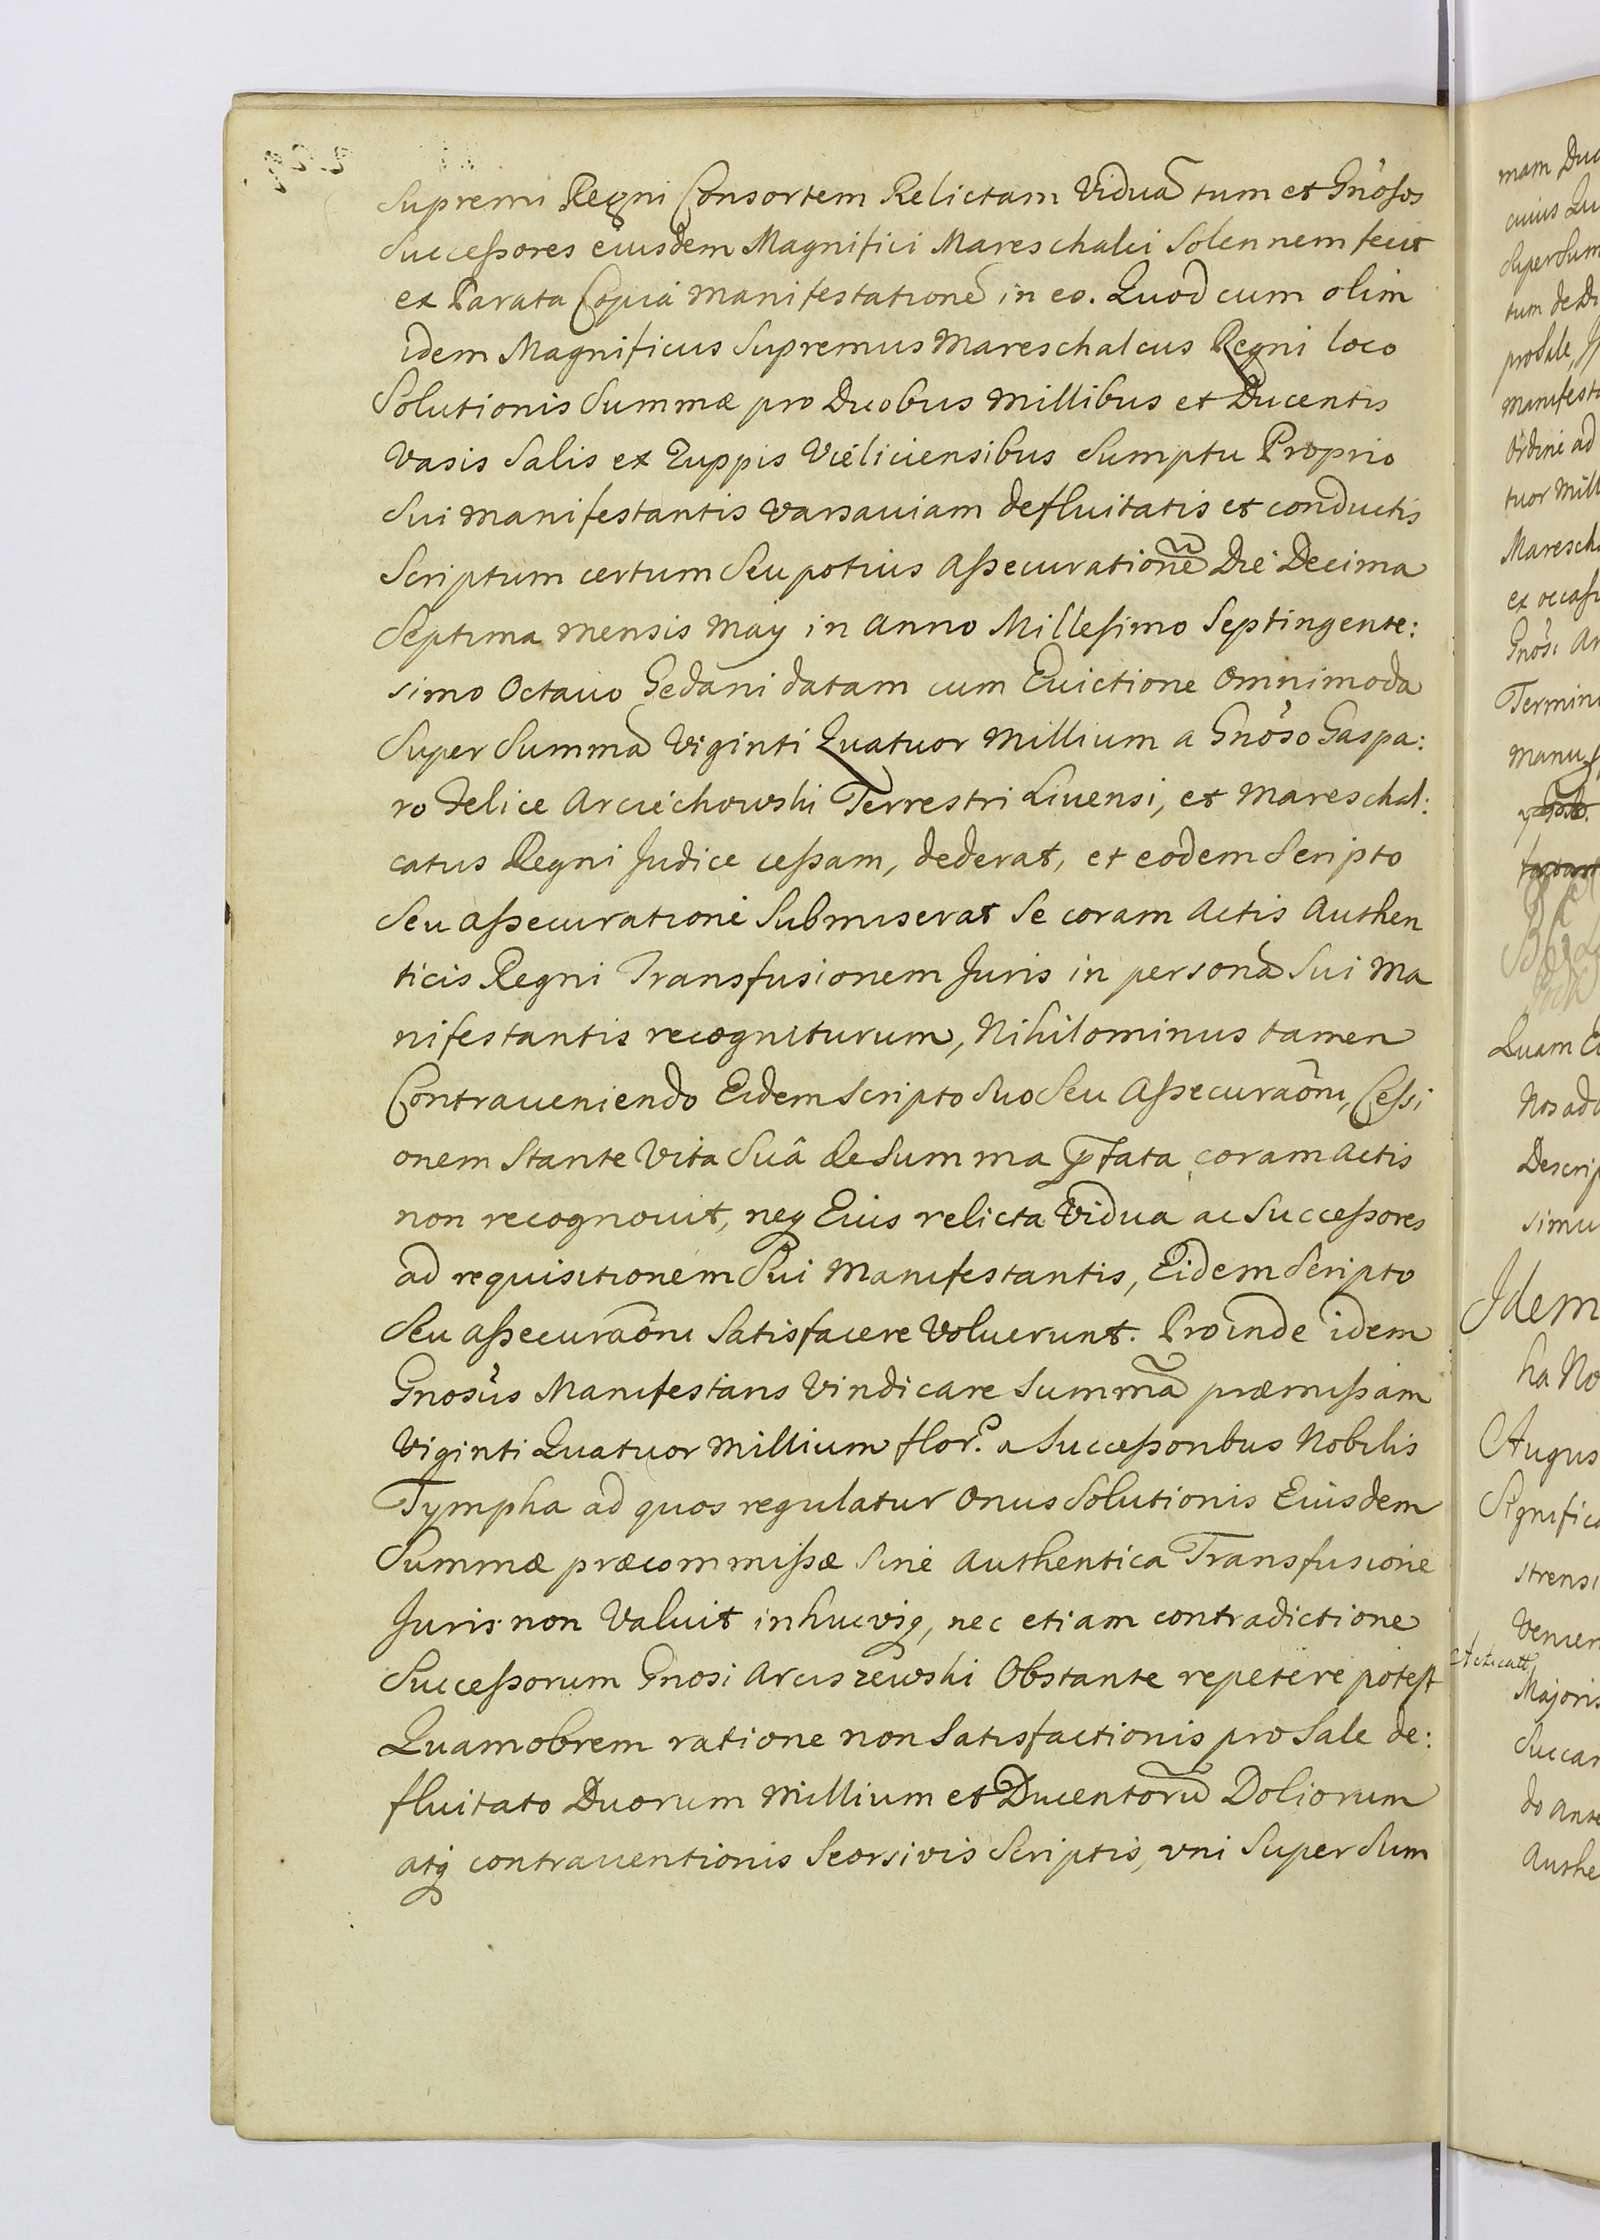 Supremi Regni Consortem Relictam Viduã tum et Gnosos
Successores eiusdem Magnifici Mareschalci Solennem fecit
ex Parata Copia Manifestationẽ in eo. Quod cum olim
idem Magnificus Supremus Mareschalcus Regni loco
Solutionis Summæ pro Duobus Millibus et Ducentis
Vasis Salis ex Zuppis Vieliciensibus Sumptu Proprio
Sui Manifestantis Varsauiam defluitatis et conductis
Scriptum certum Seu potius Assecurationẽ Die Decima
Septima Mensis May in Anno Millesimo Septingente:
simo Octauo Gedani datam cum Euictione Omnimoda
Super Summã Viginti Quatuor Millium a Gnoso Gaspa:
ro Felice Arciechowski Terrestri Liuensi, et Mareschal:
catus Regni Judice cessam, dederat, et eodem Scripto
Seu Assecuratione Submiserat Se coram Actis Authen
ticis Regni Transfusionem Juris in personã Sui Ma
nifestantis recogniturum, Nihilominus tamen
Contraueniendo Eidem Scripto Suo Seu Assecuraõni, Cessi
onem Stante Vita Suâ de Summa pfata coram Actis
non recognouit, neq Eius relicta Vidua ac Successores
ad requisitionem Sui Manifestantis, Eidem Scripto
Seu Assecuraõni Satisfacere Voluerunt. Proinde idem
Gnosus Manifestans Vindicare Summã præmissam
Viginti Quatuor Millium flor. a Successoribus Nobilis
Tympha ad quos regulatur Onus Solutionis Eiusdem
Summæ præcommissæ Sine Authentica Transfusione
Juris non Valuit inhucvsq, nec etiam contradictione
Successorum Gnosi Arciszewski Obstante repetere potest
Quamobrem ratione non Satisfactionis pro Sale de:
fluitato Duorum Millium et Ducentorũ Doliorum
atq contrauentionis Seorsivis Scriptis, vni Super Sum
mam Duc
cuius Qu
Super Sum
tum de Du
pro Sale,
Manifest
Ordine ad
tuor Mill
Maresch
ex occasi
Gnosi Ar
Termin
Manu
Quam E
Nos ad
Descrip
simu
Idem
ha No
Augus
Signific
strensi
Venien
Majoris
Succa
do ante
Authe